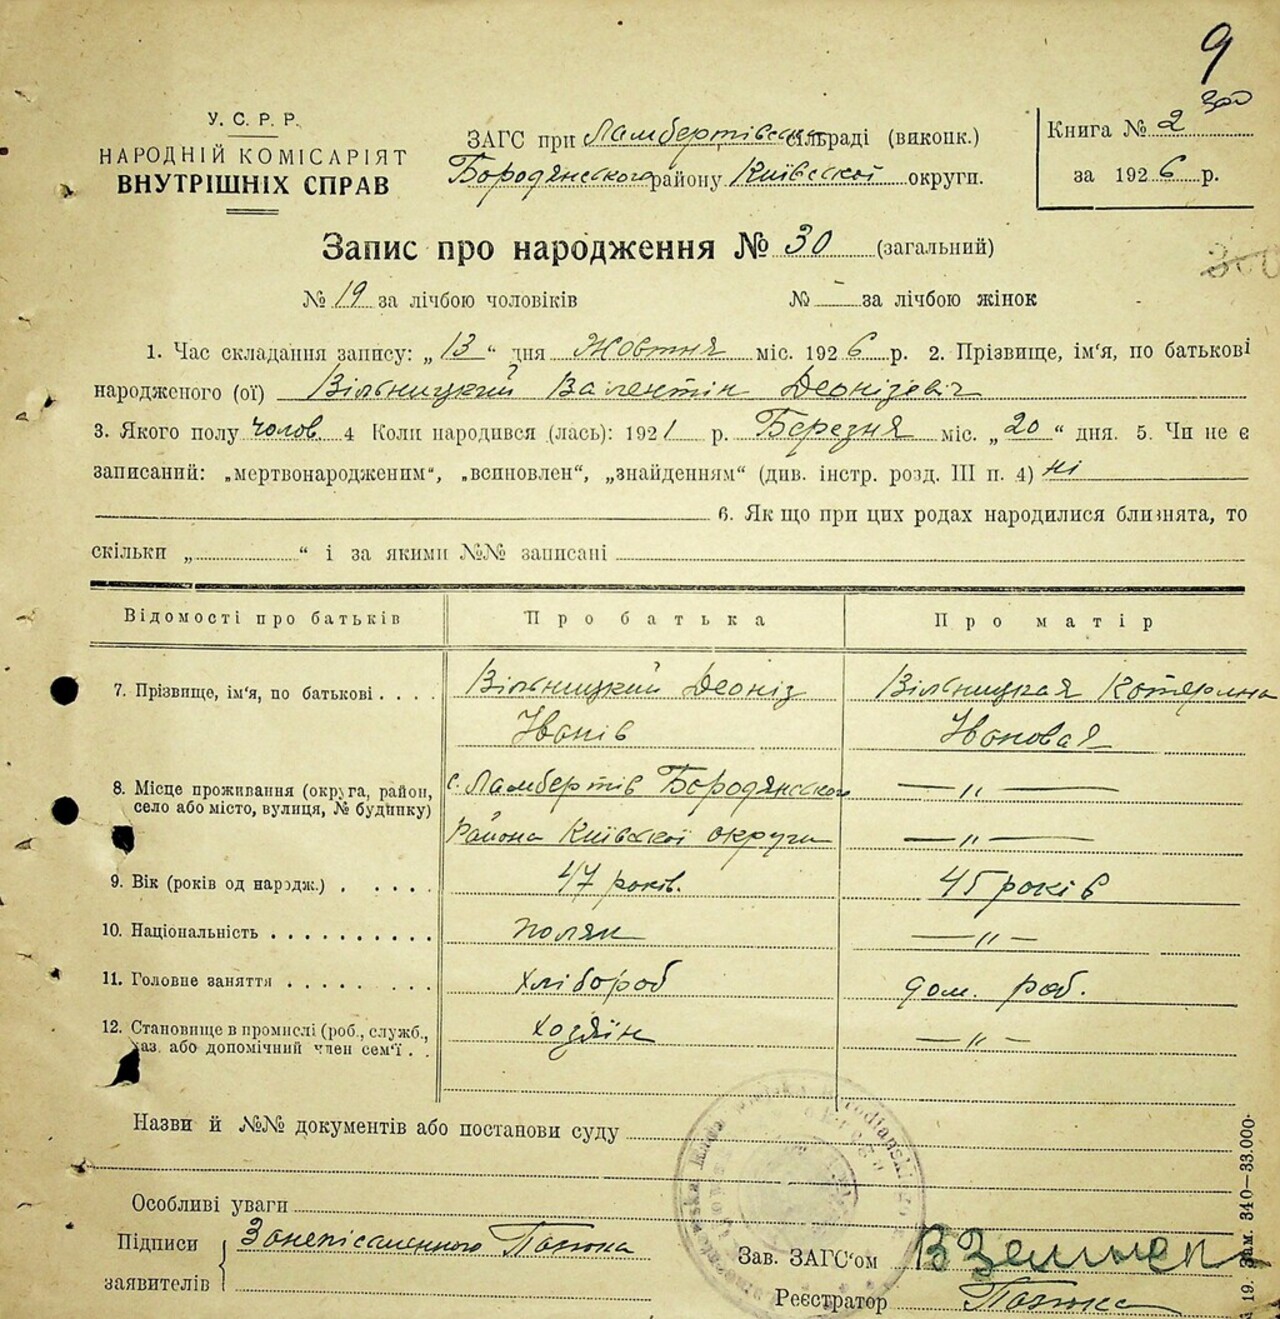 9
300
У. С. Р. Р.
НАРОДНІЙ КОМІСАРІЯТ
ВНУТРІШНІХ СПРАВ
ЗАГС при Ламбертівське сільраді (виконк.)
Бородянсского району Київсскої округи.
Книга № 2
за 1926 р.
Запис про народження № 30 (загальний)
300
№ 19 за лічбою чоловіків № - за лічбою жінок
1. Час складання запису: „ 13 “ дня Жовтня міс. 1926 р. 2. Прізвище, ім'я, по батькові
народженого (ої) Вільницкий Валентін Деонізевіч
3. Якого полу чолов. 4 Коли народився (лась): 1921 р. Березня міс. „ 20 “ дня. 5. Чи не є
записаний: „мертвонародженим“, „всиновлен“, „знайденням“ (див. інстр. розд. III п. 4) ні
6. Як що при цих родах народилися близнята, то
скільки „ “ і за якими №№ записані
Відомості про батьків Про батька Про матір
7. Прізвище, ім'я, по батькові . . . . Вільницкий Деоніз Вільницкая Котерина
Іванів Івановая
8. Місце проживання (округа, район, с. Ламбертів Бородянсского — „ —
село або місто, вулиця, № будинку)
Района Київсскої округи — „ —
9. Вік (років од народж.) . . . . . 47 років. 45 років
10. Національність . . . . . . . . . . поляк — „ —
11. Головне заняття . . . . . . . . хлібороб дом. роб.
12. Становище в промислі (роб., служб., хозяїн — „ —
хаз. або допомічний член сем'ї . .
Назви й №№ документів або постанови суду
Особливі уваги
Підписи
заявителів
Занепісьменного Пазюка
Зав. ЗАГС'ом
Реєстратор Пазюка
19. Зам. 340—33.000.